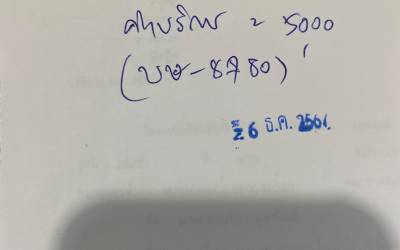 ค่าบริการ = 5000
(บษ-8780)
26 ธ.ค. 2561